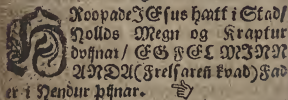 HRoopade JEsus hátt i Stad/
Hollds Megn og Kraptur
dvijnar/ EG FEL MINN
ANDA (Frelsareñ kvad) Fad
er i Hendur þijnar.